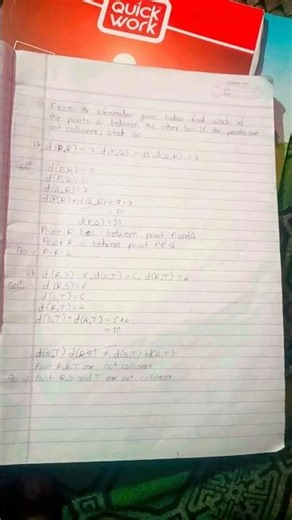 QUICK
WORK
From the information given below find which of
the points is between the other two. If the points are
not collinear, state so.
d(P,R) = 7, d(P,Q) = 10, d(Q,R) = 3
d(P,R) = 7
d(P,Q) = 10
d(Q,R) = 3
d(P,R) + d(Q,R) = 7+3
10
d(P,Q) = 10
Point R lies between point P and Q
Point R is between point P & Q
P-R-Q
d(R,S) = 8, d(S,T) = 6, d(R,T) = 4
d(R,S) = 8
d(S,T) = 6
d(R,T) = 4
d(S,T) + d(R,T) = 6+4
= 10
d(R,S) ≠ d(S,T) + d(R,T)
Point R,S,T are not collinear
Point R,S and T are not collinear